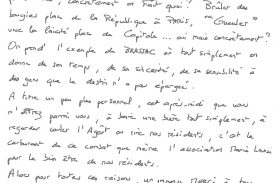 concrètement on fait quoi ? Brûler des
bougies place de la République à PARIS, "Gueuler"
vive la laïcité place du Capitole... ou mais concrètement ?
On prend l'exemple de BRASSAC où tout simplement on
donne de son temps, de sa sincérité, de sa sensibilité à
des gens que le destin n'a pas épargné.
A titre un peu plus personnel, cet après-midi que vous
n'êtes parmi vous, à boire une bière tout simplement, à
regarder couler l'Agoût ou rire nos résidents, c'est le
carburant de ce combat que mène l'association Marie Louise
par le bien être de nos résidents.
Alors pour toutes ces raisons, un immense Merci à